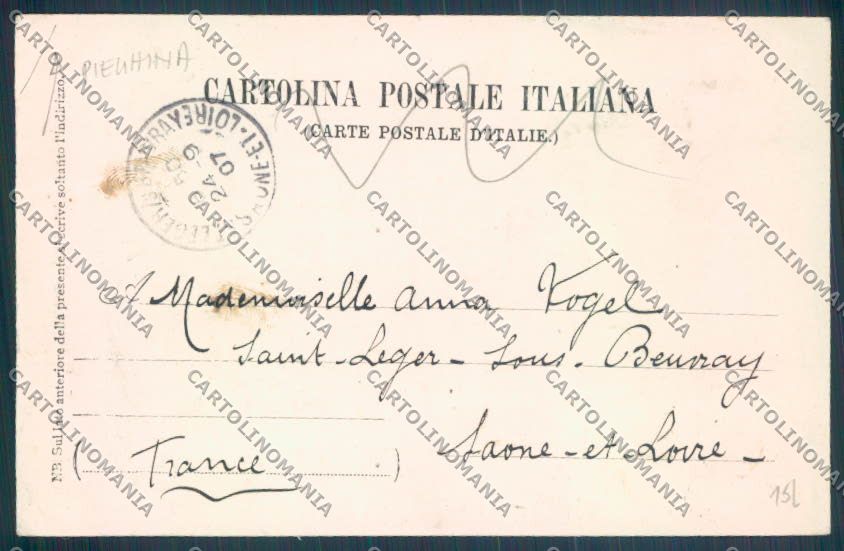 PIEGHINA
CARTOLINA POSTALE ITALIANA
(CARTE POSTALE D'ITALIE.)
SAONE-ET-LOIRE
24 -9
07
NB. Sul lato anteriore della presente si scrive soltanto l'indirizzo.
A Mademoiselle Anna Vogel
Saint-Leger-Sous-Beuvray
Saone-et-Loire-
(France)
15/
CARTOLINOMANIA